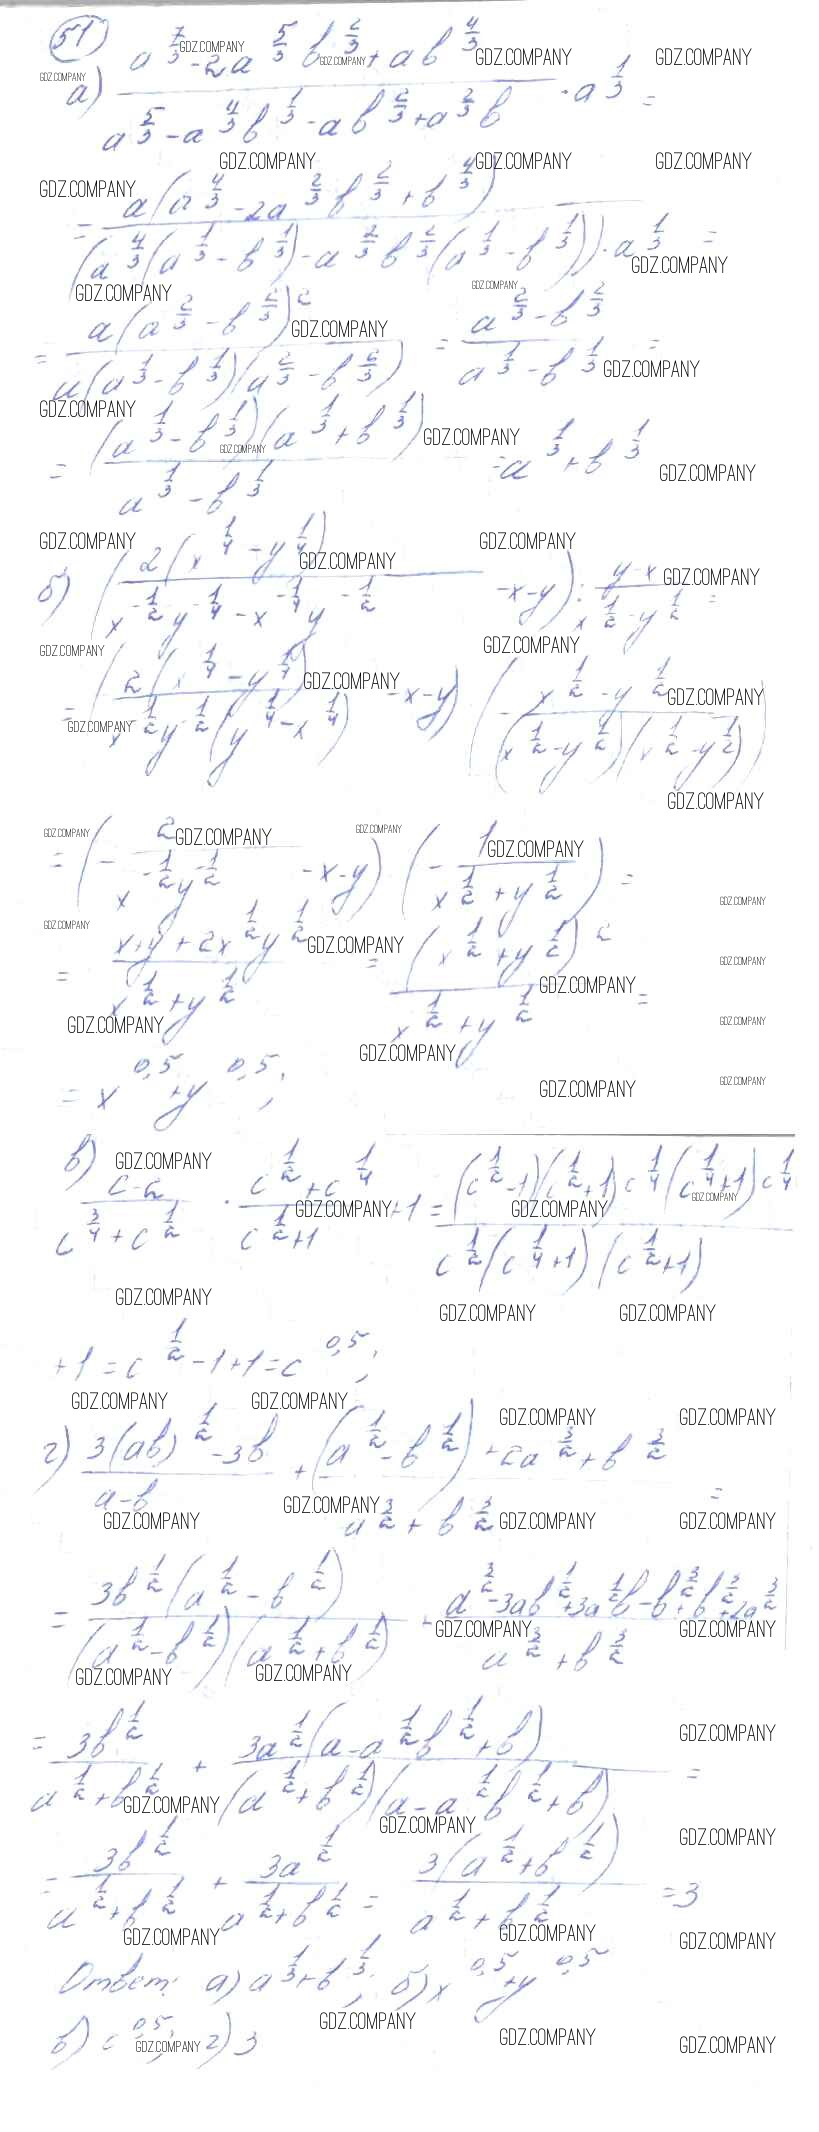 51
а) (a^(7/3) - 2a^(5/3) b^(2/3) + ab^(4/3)) / (a^(5/3) - a^(4/3) b^(1/3) - ab^(2/3) + a^(2/3) b) · a^(1/3) =
= a(a^(4/3) - 2a^(2/3) b^(2/3) + b^(4/3)) / (a^(4/3)(a^(1/3) - b^(1/3)) - a^(2/3) b^(2/3)(a^(1/3) - b^(1/3))) · a^(1/3) =
= a(a^(2/3) - b^(2/3))^2 / (a(a^(1/3) - b^(1/3))(a^(2/3) - b^(2/3))) = (a^(2/3) - b^(2/3)) / (a^(1/3) - b^(1/3)) =
= (a^(1/3) - b^(1/3))(a^(1/3) + b^(1/3)) / (a^(1/3) - b^(1/3)) = a^(1/3) + b^(1/3)
б) (2(x^(1/4) - y^(1/4)) / (x^(-1/2) y^(-1/4) - x^(-1/4) y^(-1/2)) - x - y) : (y - x) / (x^(1/2) - y^(1/2)) =
= (2(x^(1/4) - y^(1/4)) / (x^(-1/2) y^(-1/2) (y^(1/4) - x^(1/4))) - x - y) (- (x^(1/2) - y^(1/2)) / ((x^(1/2) - y^(1/2))(x^(1/2) - y^(1/2))))
= (- 2 / (x^(-1/2) y^(-1/2)) - x - y) · (- 1 / (x^(1/2) + y^(1/2))) =
= (x + y + 2x^(1/2) y^(1/2)) / (x^(1/2) + y^(1/2)) = (x^(1/2) + y^(1/2))^2 / (x^(1/2) + y^(1/2)) =
= x^0,5 + y^0,5;
в) (c - 2) / (c^(3/4) + c^(1/2)) · (c^(1/2) + c^(1/4)) / (c^(1/2) + 1) + 1 = (c^(1/2) - 1)(c^(1/2) + 1) c^(1/4) (c^(1/4) + 1) c^(1/4) / (c^(1/2) (c^(1/4) + 1)(c^(1/2) + 1))
+ 1 = c^(1/2) - 1 + 1 = c^0,5;
г) (3(ab)^(1/2) - 3b) / (a - b) + ((a^(1/2) - b^(1/2)) + 2a^(3/2) + b^(3/2)) / (a^(3/2) + b^(3/2)) =
= 3b^(1/2)(a^(1/2) - b^(1/2)) / ((a^(1/2) - b^(1/2))(a^(1/2) + b^(1/2))) + (a^(3/2) - 3ab^(1/2) + 3a^(1/2) b - b^(3/2) + b^(3/2) + 2a^(3/2)) / (a^(3/2) + b^(3/2))
= 3b^(1/2) / (a^(1/2) + b^(1/2)) + 3a^(1/2)(a - a^(1/2) b^(1/2) + b) / ((a^(1/2) + b^(1/2))(a - a^(1/2) b^(1/2) + b)) =
= 3b^(1/2) / (a^(1/2) + b^(1/2)) + 3a^(1/2) / (a^(1/2) + b^(1/2)) = 3(a^(1/2) + b^(1/2)) / (a^(1/2) + b^(1/2)) = 3
Ответ: а) a^(1/3) + b^(1/3); б) x^0,5 + y^0,5
в) c^0,5; г) 3